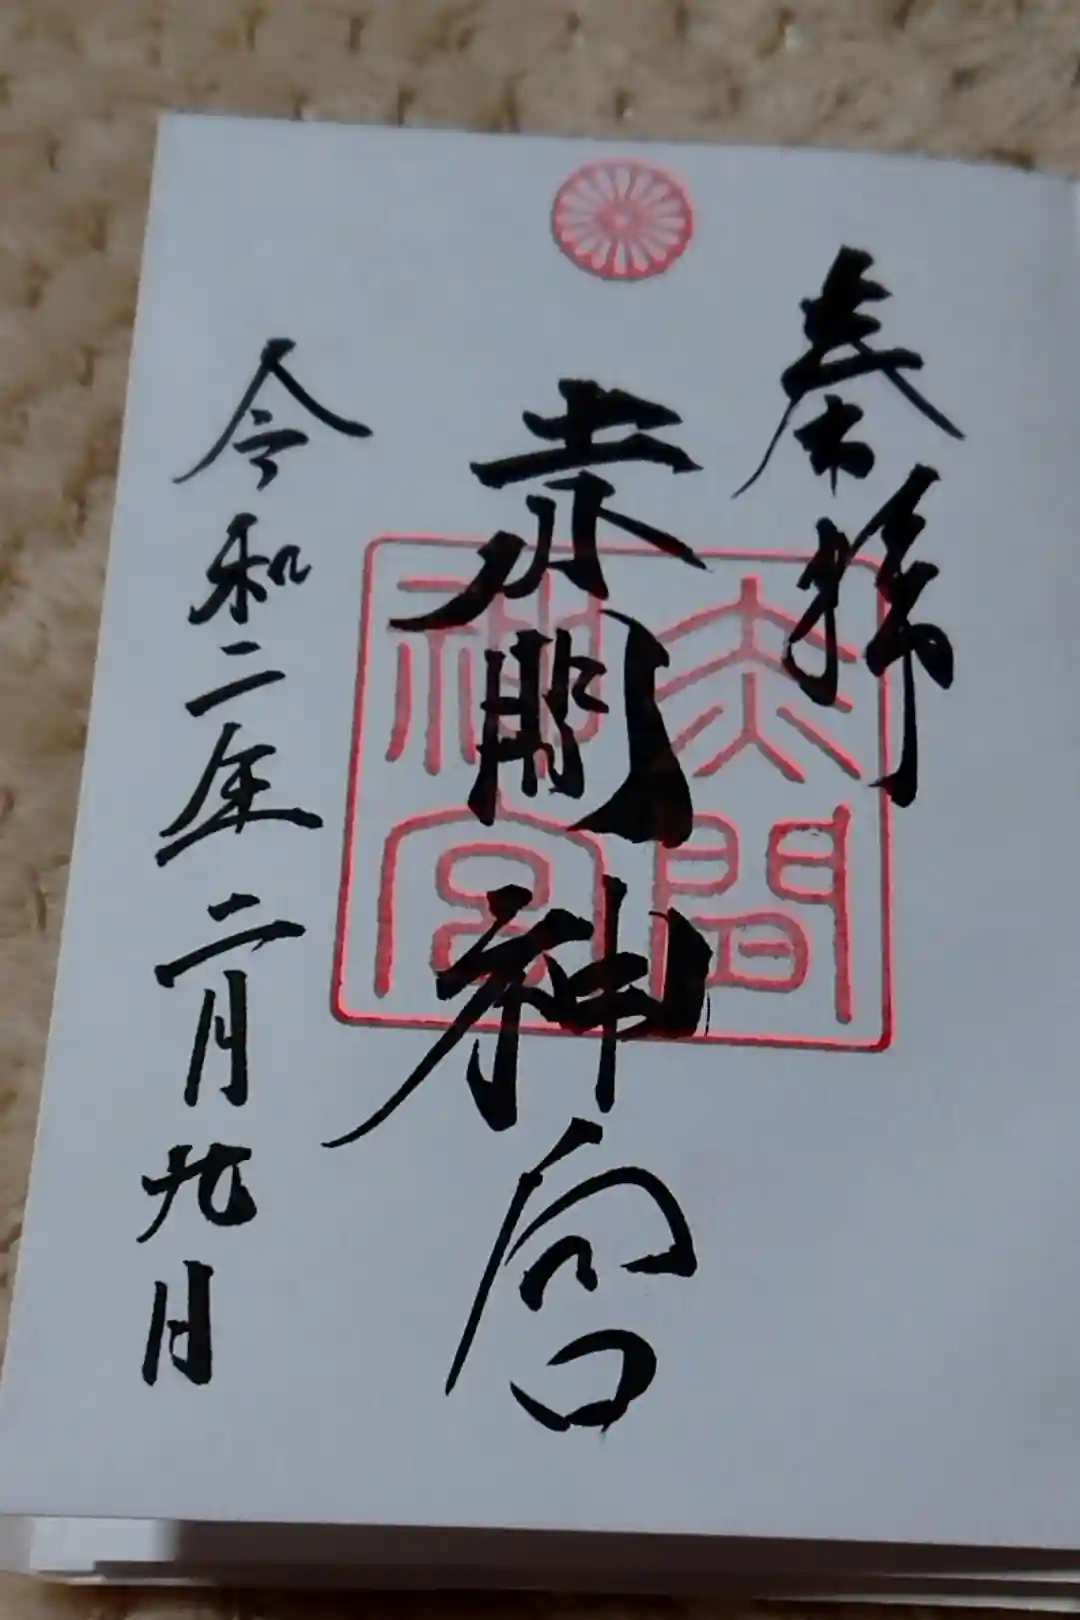 奉拝
赤間神宮
赤間
神宮
令和二年二月九日